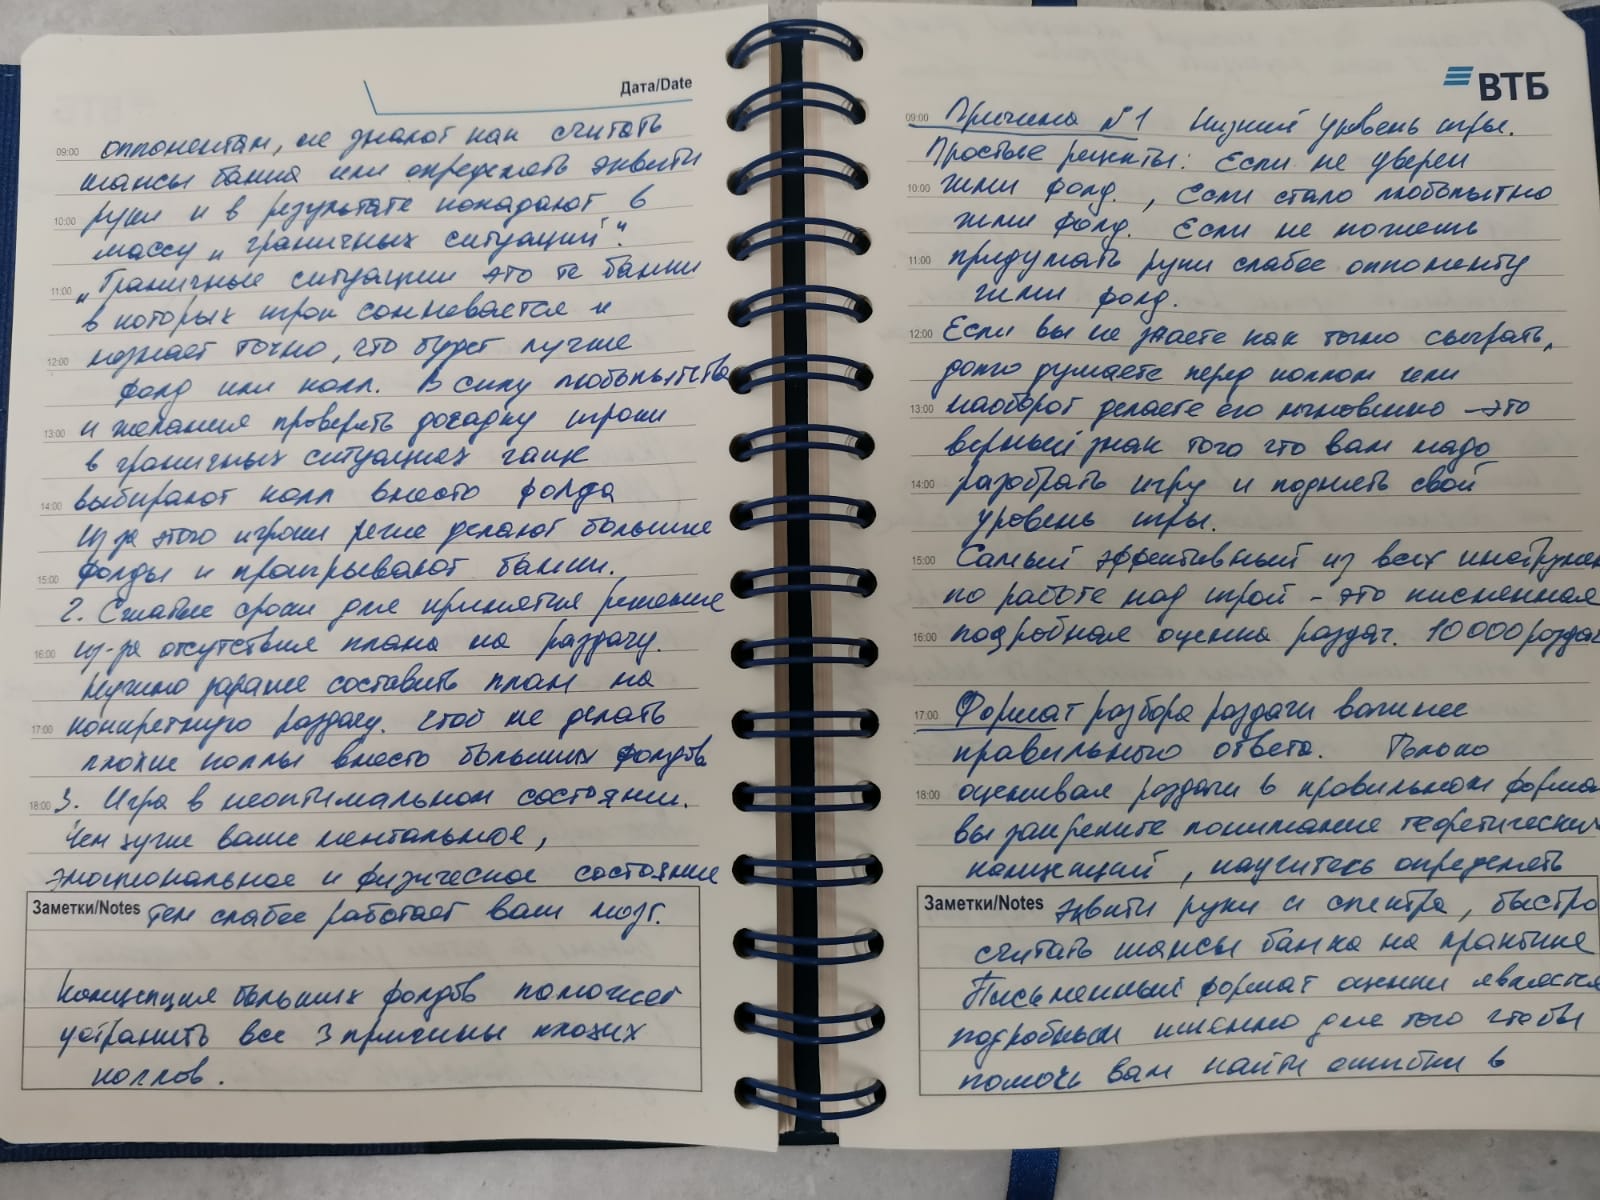 Дата/Date
09:00 оппонентам, не знают как считать
шансы банка или определять эквити
10:00 руки и в результате попадают в
массу „граничных ситуаций".
11:00 „Граничные ситуации это те банки
в которых игрок сомневается и
12:00 незнает точно, что будет лучше
фолд или колл. В силу любопытства
13:00 и желания проверить догадку игроки
в граничных ситуациях чаще
14:00 выбирают колл вместо фолда
Из за этого игроки реже делают большие
15:00 фолды и проигрывают банки.
2. Сжатые сроки для принятия решение
16:00 из-за отсутствия плана на раздачу.
Нужно заранее составить план на
17:00 конкретную раздачу. Чтоб не делать
плохие коллы вместо больших фолдов
18:00 3. Игра в неоптимальном состоянии.
Чем хуже ваше ментальное,
эмоциональное и физическое состояние
Заметки/Notes тем слабее работает ваш мозг.
Концепция больших фолдов поможет
устранить все 3 причины плохих
коллов.
ВТБ
09:00 Причина №1 Низкий уровень игры.
Простые рецепты: Если не уверен
10:00 жми фолд., Если стало любопытно
жми фолд. Если не можешь
11:00 придумать руки слабее оппоненту
жми фолд.
12:00 Если вы не знаете как точно сыграть,
долго думаете перед коллом или
13:00 наоборот делаете его мгновенно – это
верный знак того что вам надо
14:00 разобрать игру и поднять свой
уровень игры.
15:00 Самый эффективный из всех инструмен
по работе над игрой – это писменная
16:00 подробная оценка раздач. 10 000 раздач
17:00 Формат разбора раздачи важнее
правильного ответа. Только
18:00 оценивая раздачи в правильном форма
вы закрепите понимание теоретических
концепций, научитесь определять
Заметки/Notes эквити руки и спектра, быстро
считать шансы банка на практике
Письменный формат оценки является
подробным именно для того чтобы
помочь вам найти ошибки в